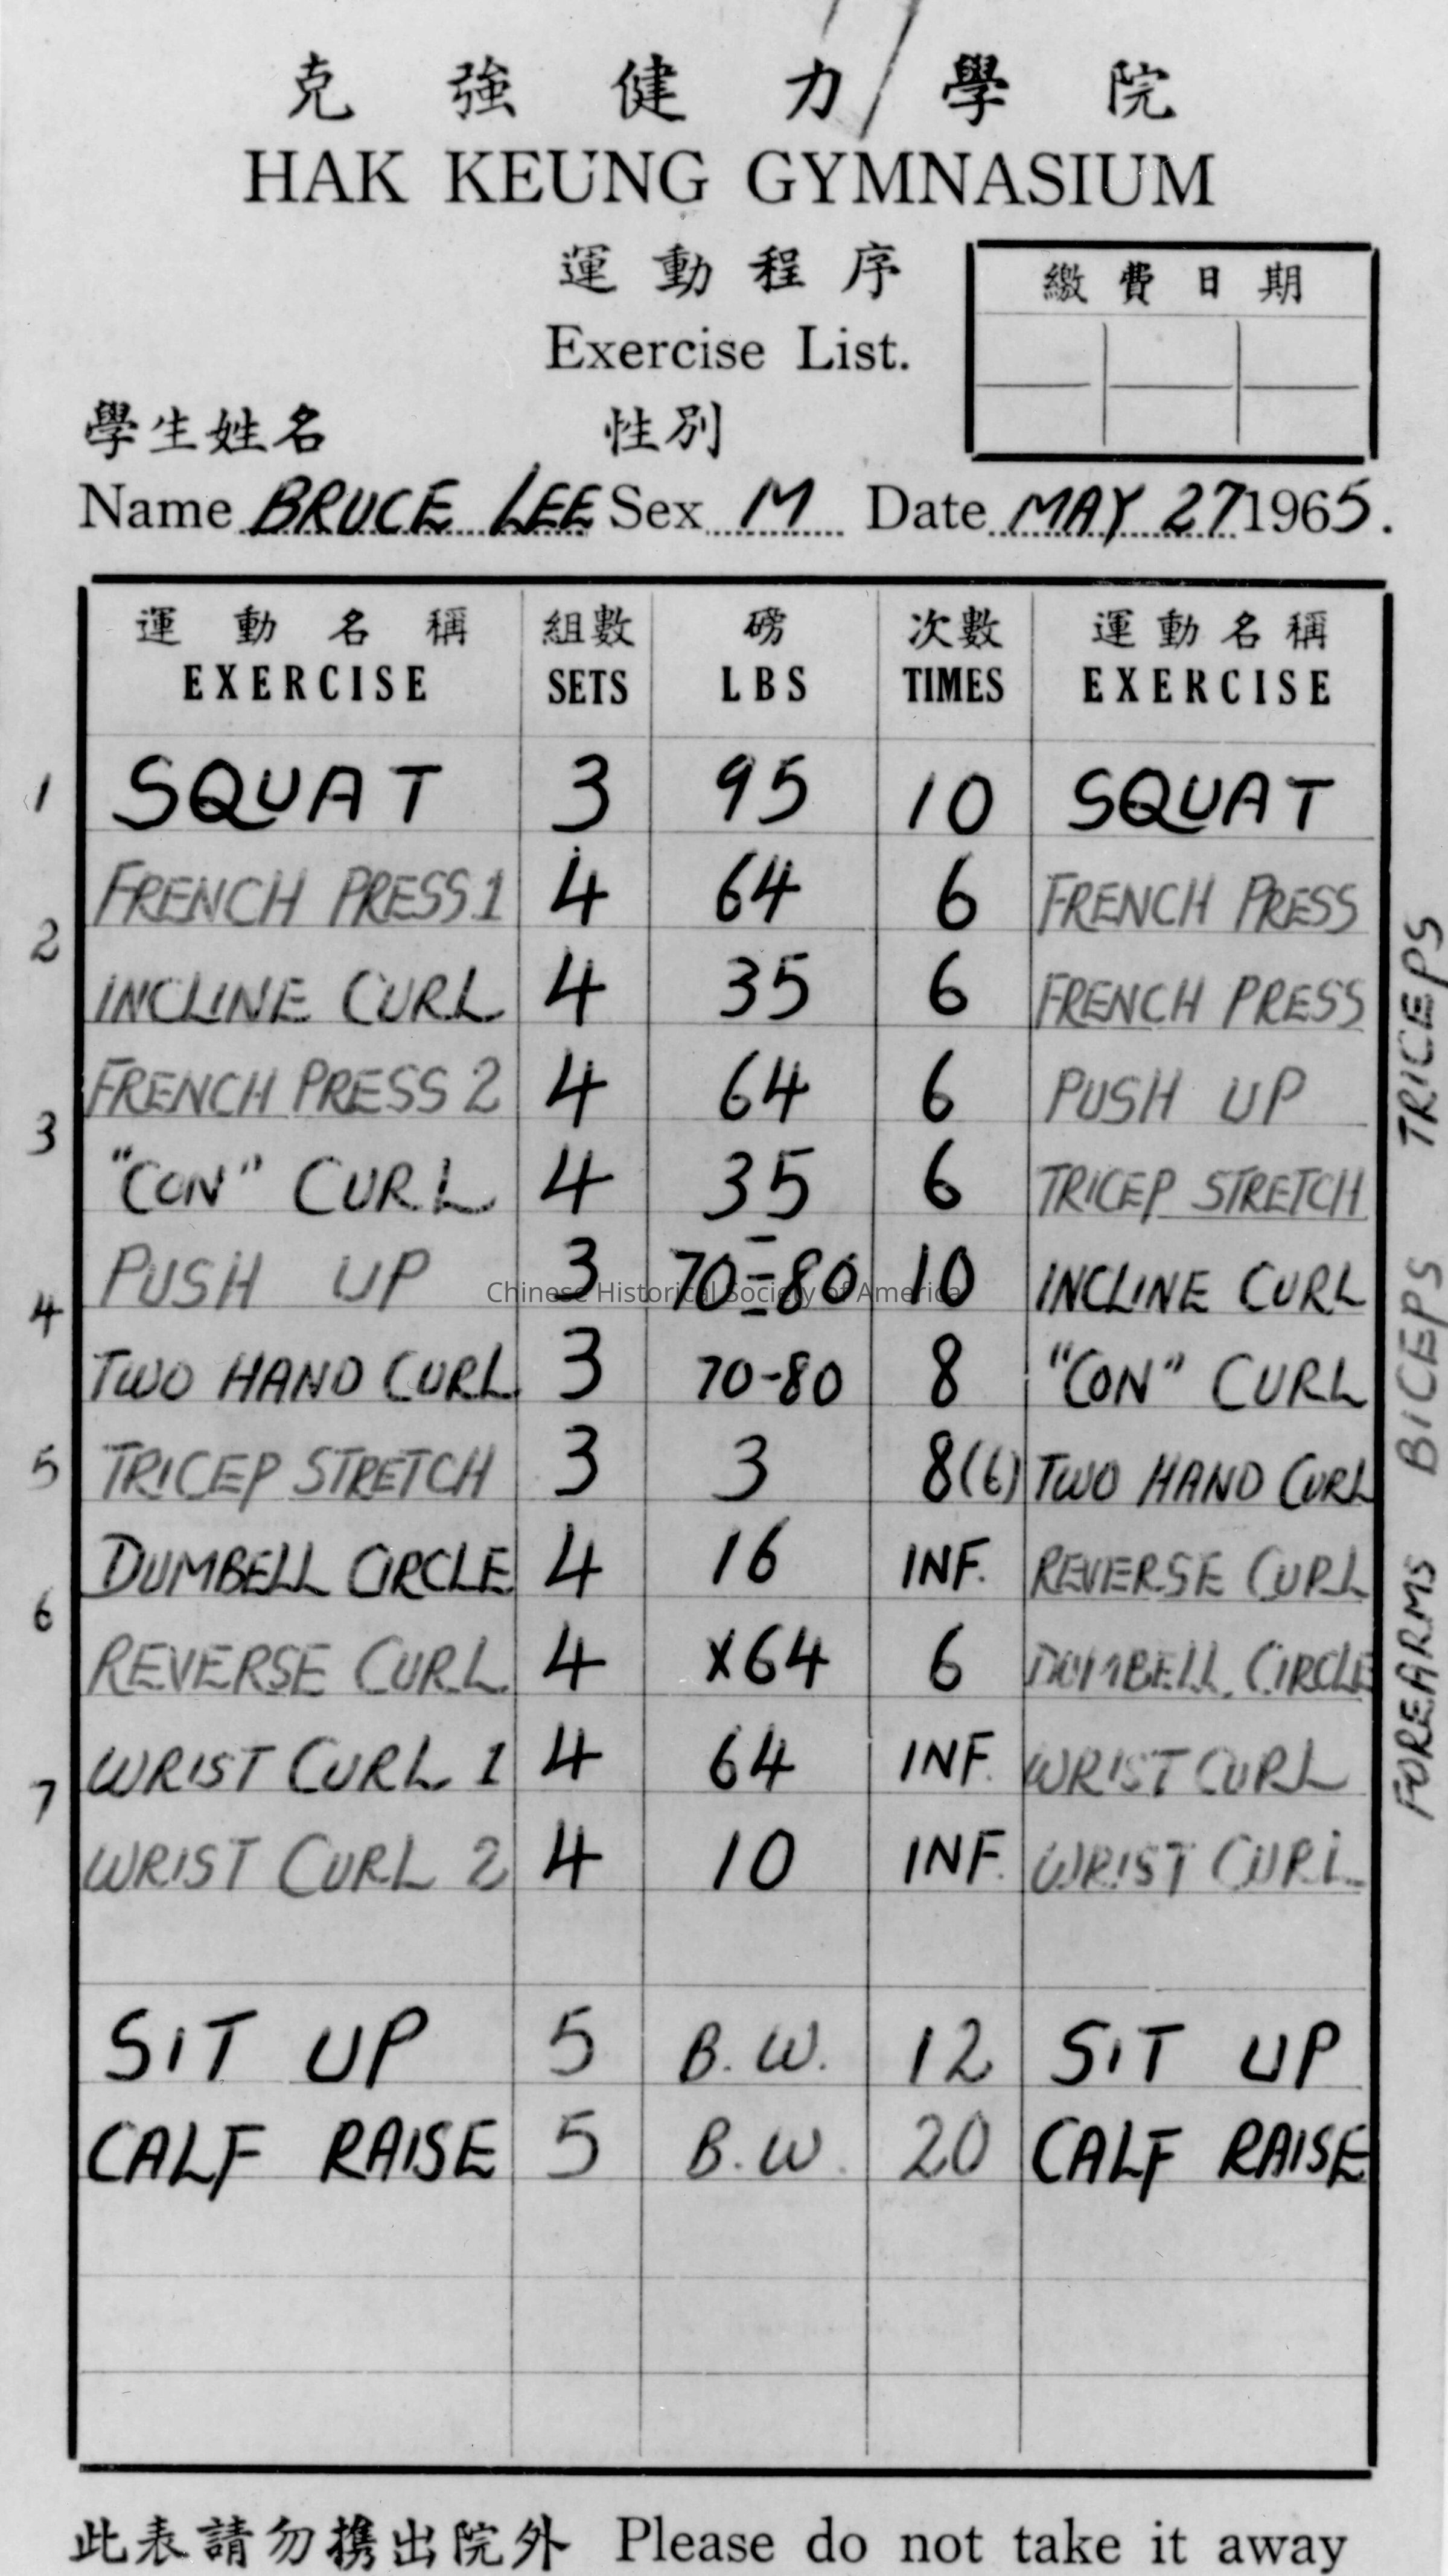 克強健力學院
HAK KEUNG GYMNASIUM
運動程序
Exercise List.
繳費日期
學生姓名 性別
Name BRUCE LEE Sex M Date MAY 27 1965.
運動名稱 組數 磅 次數 運動名稱
EXERCISE SETS LBS TIMES EXERCISE
1 SQUAT 3 95 10 SQUAT
FRENCH PRESS 1 4 64 6 FRENCH PRESS
2
INCLINE CURL 4 35 6 FRENCH PRESS
FRENCH PRESS 2 4 64 6 PUSH UP
TRICEPS
3
"CON" CURL 4 35 6 TRICEP STRETCH
PUSH UP 3 70=80 10 INCLINE CURL
Chinese Historical Society of America
4
TWO HAND CURL 3 70-80 8 "CON" CURL
BICEPS
5 TRICEP STRETCH 3 3 8(6) TWO HAND CURL
DUMBELL CIRCLE 4 16 INF. REVERSE CURL
6
REVERSE CURL 4 X64 6 DUMBELL CIRCLE
FOREARMS
WRIST CURL 1 4 64 INF. WRIST CURL
7
WRIST CURL 2 4 10 INF. WRIST CURL
SIT UP 5 B.W. 12 SIT UP
CALF RAISE 5 B.W. 20 CALF RAISE
此表請勿携出院外 Please do not take it away